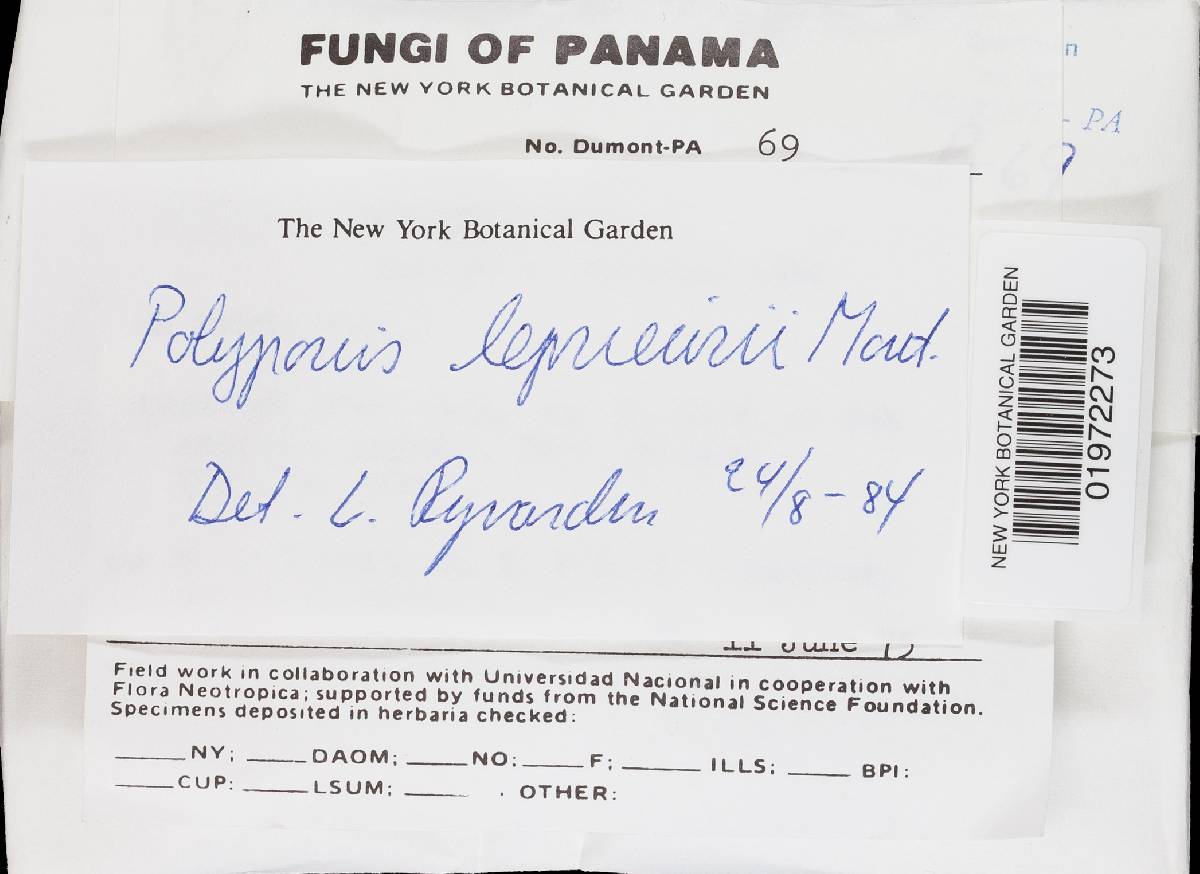 FUNGI OF PANAMA
THE NEW YORK BOTANICAL GARDEN
No. Dumont-PA 69
n
- PA
The New York Botanical Garden
Polyporus leprieurii Mont.
Det. L. Ryvarden 24/8-84
NEW YORK BOTANICAL GARDEN
01972273
11 June
Field work in collaboration with Universidad Nacional in cooperation with
Flora Neotropica; supported by funds from the National Science Foundation.
Specimens deposited in herbaria checked:
_____NY; _____DAOM; _____NO; _____F; _____ILLS; _____BPI:
_____CUP: _____LSUM; _____ . OTHER: